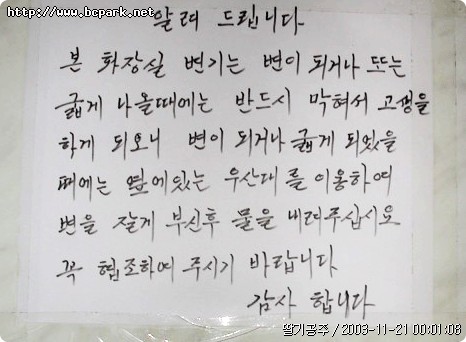 http://www.bcpark.net
알려 드립니다
본 화장실 변기는 변이 되거나 또는
굵게 나올때에는 반드시 막혀서 고생을
하게 되오니 변이 되거나 굵게 되었을
때에는 옆에있는 우산대를 이용하여
변을 잘게 부신후 물을 내려주십시요
꼭 협조하여 주시기 바랍니다
감사 합니다
딸기공주 / 2003-11-21 00:01:08